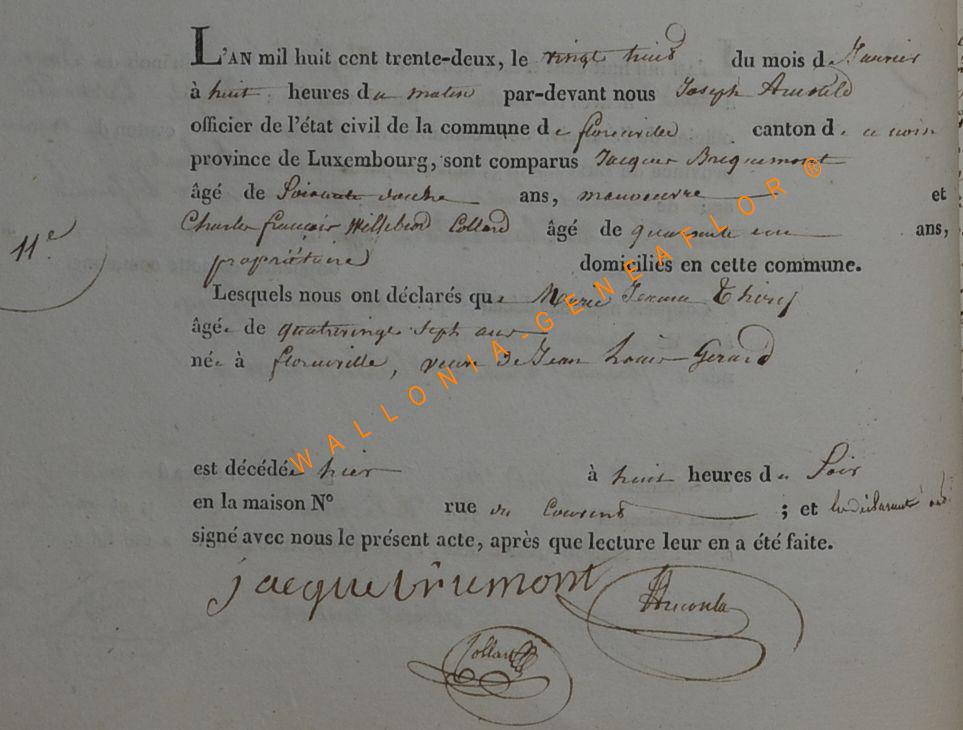 11e
L'AN mil huit cent trente-deux, le vingt huit du mois de Janvier
à huit heures du matin par-devant nous Joseph Arnould
officier de l'état civil de la commune de florenville canton de
province de Luxembourg, sont comparus Jacques Bricquemont
âgé de Soixante ans, manoeuvre et
Charles françois Willebrod Collard âgé de quarante ans,
propriétaire domiciliés en cette commune.
Lesquels nous ont déclarés que Marie Jeanne Thiry
âgée de quatrevingt Sept ans
née à florenville, veuve de Jean Louis Gerard
est décédée hier à huit heures du Soir
en la maison N° rue du Couvent ; et les déclarants ont
signé avec nous le présent acte, après que lecture leur en a été faite.
jacque briemont
Arnould
Collard
WALLONIA-GENEAFLOR ®